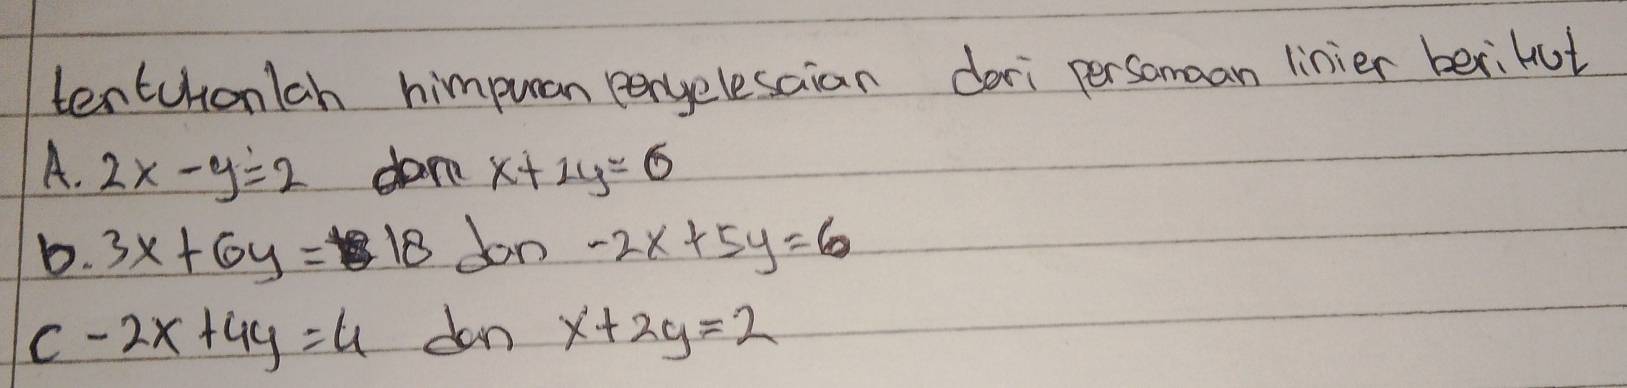 tentukanlah himpunan penyelesaian dari persamaan linier berikut
A. 2x - y = 2 dan x + 2y = 6
b. 3x + 6y = 18 dan -2x + 5y = 6
c -2x + 4y = 4 dan x + 2y = 2